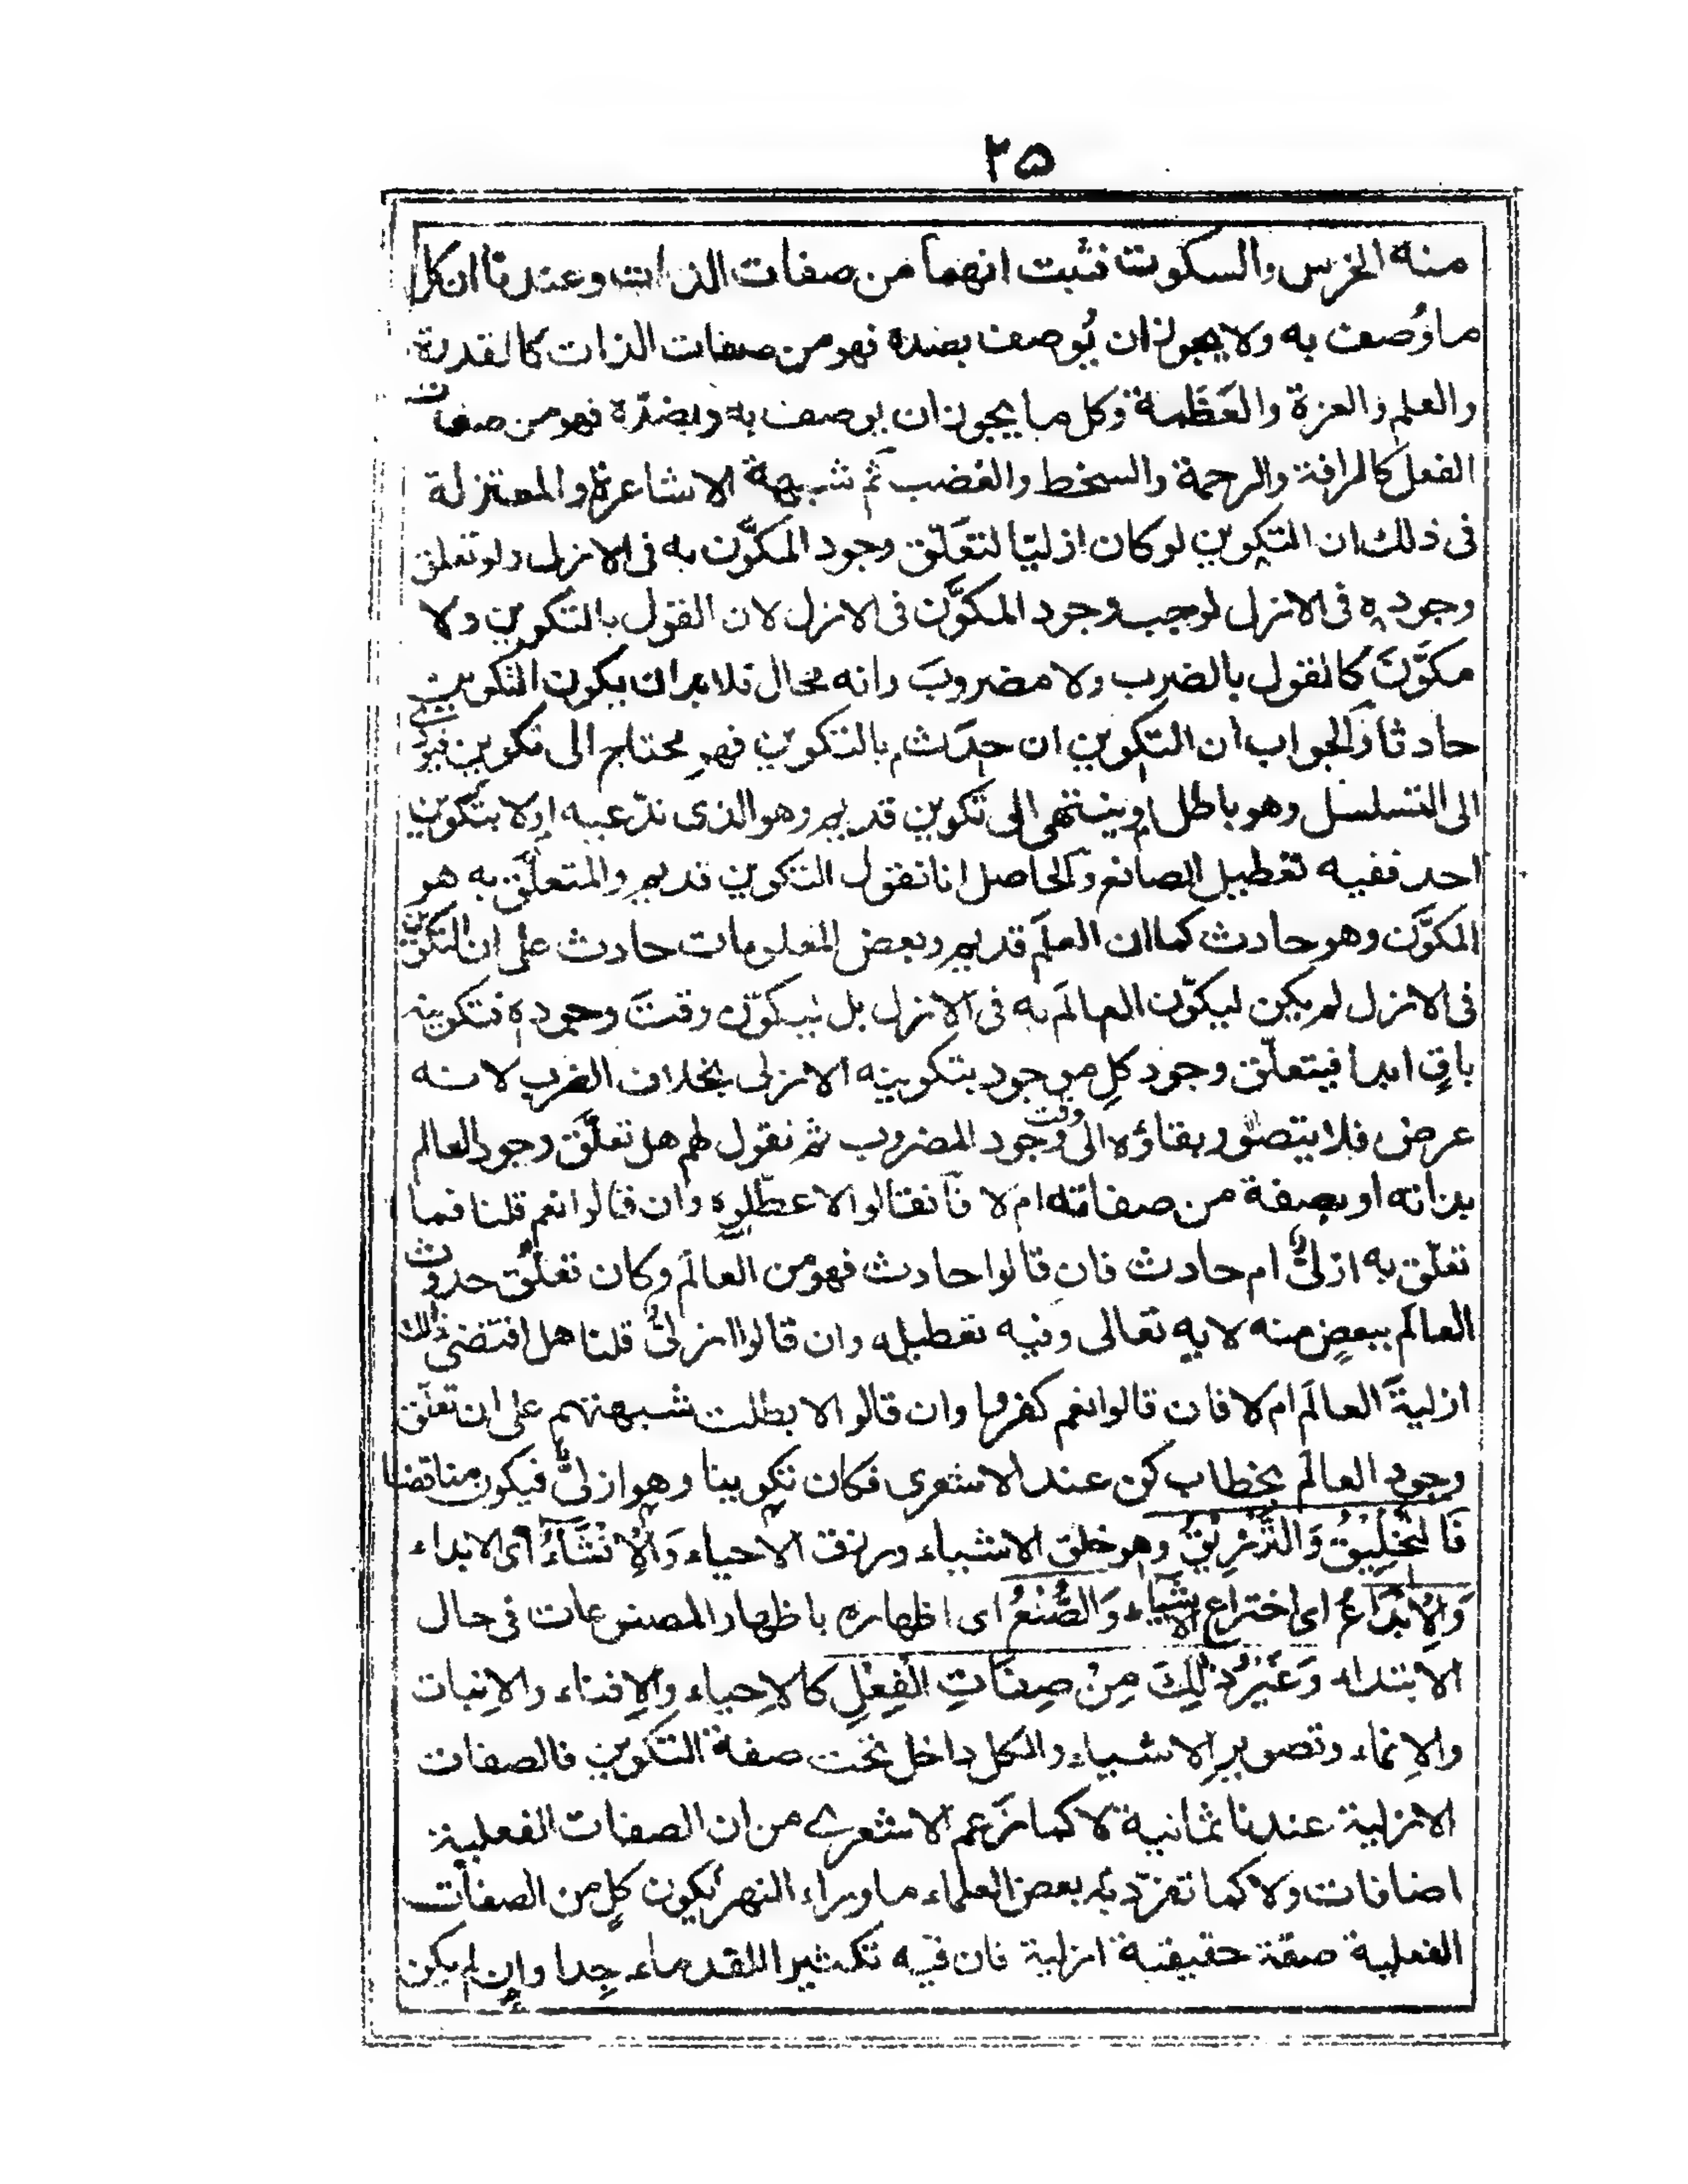 ۲۵
منه الخرس والسكوت فثبت انهما من صفات الذات وعندنا ان كل
ما وُصف به ولا يجوز ان يُوصف بضده فهو من صفات الذات كالقدرة
والعلم والعزة والعَظَمة وكل ما يجوز ان يوصف به وبضدّه فهو من صفات
الفعل كالرافة والرحمة والسخط والغضب ثم شبهة الاشاعرة والمعتزلة
فى ذلك ان التكوين لو كان ازليّا لتعَلّق وجود المكوَّن به فى الازل ولو تعلق
وجوده فى الازل لوجب وجود المكوَّن فى الازل لان القول بالتكوين ولا
مكوَّنَ كالقول بالضرب ولا مضروبَ وانه محال فلابد ان يكون التكوين
حادثا والجواب ان التكوين ان حدَث بالتكوين فهو محتاج الى تكوين فيؤدى
الى التسلسل وهو باطل او ينتهى الى تكوين قديم وهو الذى ندّعيه او لا بتكوين
احد ففيه تعطيل الصانع والحاصل انا نقول التكوين قديم والمتعلَّق به هو
المكوَّن وهو حادث كما ان العلم قديم وبعض المعلومات حادث على ان التكوين
فى الازل لم يكن ليكوّن العالَم به فى الازل بل ليكوّن وقتَ وجوده فتكوينه
باقٍ ابدا فيتعلّق وجود كلِ موجود بتكوينه الازلى بخلاف الضرب لانه
عرض فلا يتصوّر بقاؤه الى وقت وجود المضروب ثم نقول لهم هل تعلَّق وجود العالم
بذاته او بصفة من صفاته ام لا فان قالوا لا عطّلوه وان قالوا نعم قلنا فما
تعلّق به ازلىٌّ ام حادث فان قالوا حادث فهو من العالَم وكان تعلّق حدوث
العالَم ببعضٍ منه لا به تعالى وفيه تعطيله وان قالوا ازلىٌّ قلنا هل اقتضى ذلك
ازليةَ العالَم ام لا فان قالوا نعم كفروا وان قالوا لا بطلت شبهتهم على ان تعلّق
وجود العالَم بخطاب كن عند الاشعرى فكان تكوينا وهو ازلىٌّ فيكون مناقضا
فَالتَّخْلِيْقُ وَالتَّرْزِيْقُ وهو خلق الاشياء ورزق الاحياء وَالْاِنْشَاءُ اى الابداء
وَالْاِبْدَاعُ اى اختراع الاشياء وَالصُّنْعُ اى اظهاره باظهار المصنوعات فى حال
الابتداء وَغَيْرُ ذٰلِكَ مِنْ صِفَاتِ الْفِعْلِ كالاِحياء والاِفناء والاِنبات
والاِنماء وتصويرِ الاشياء والكل داخل تحت صفة التكوين فالصفات
الازلية عندنا ثمانية لا كما زعم الاشعرى من ان الصفات الفعلية
اضافات ولا كما تفرّد به بعض العلماء ما وراء النهر بكون كلٍ من الصفات
الفعلية صفة حقيقية ازلية فان فيه تكثيرا للقدماء جِدا وان لم يكن